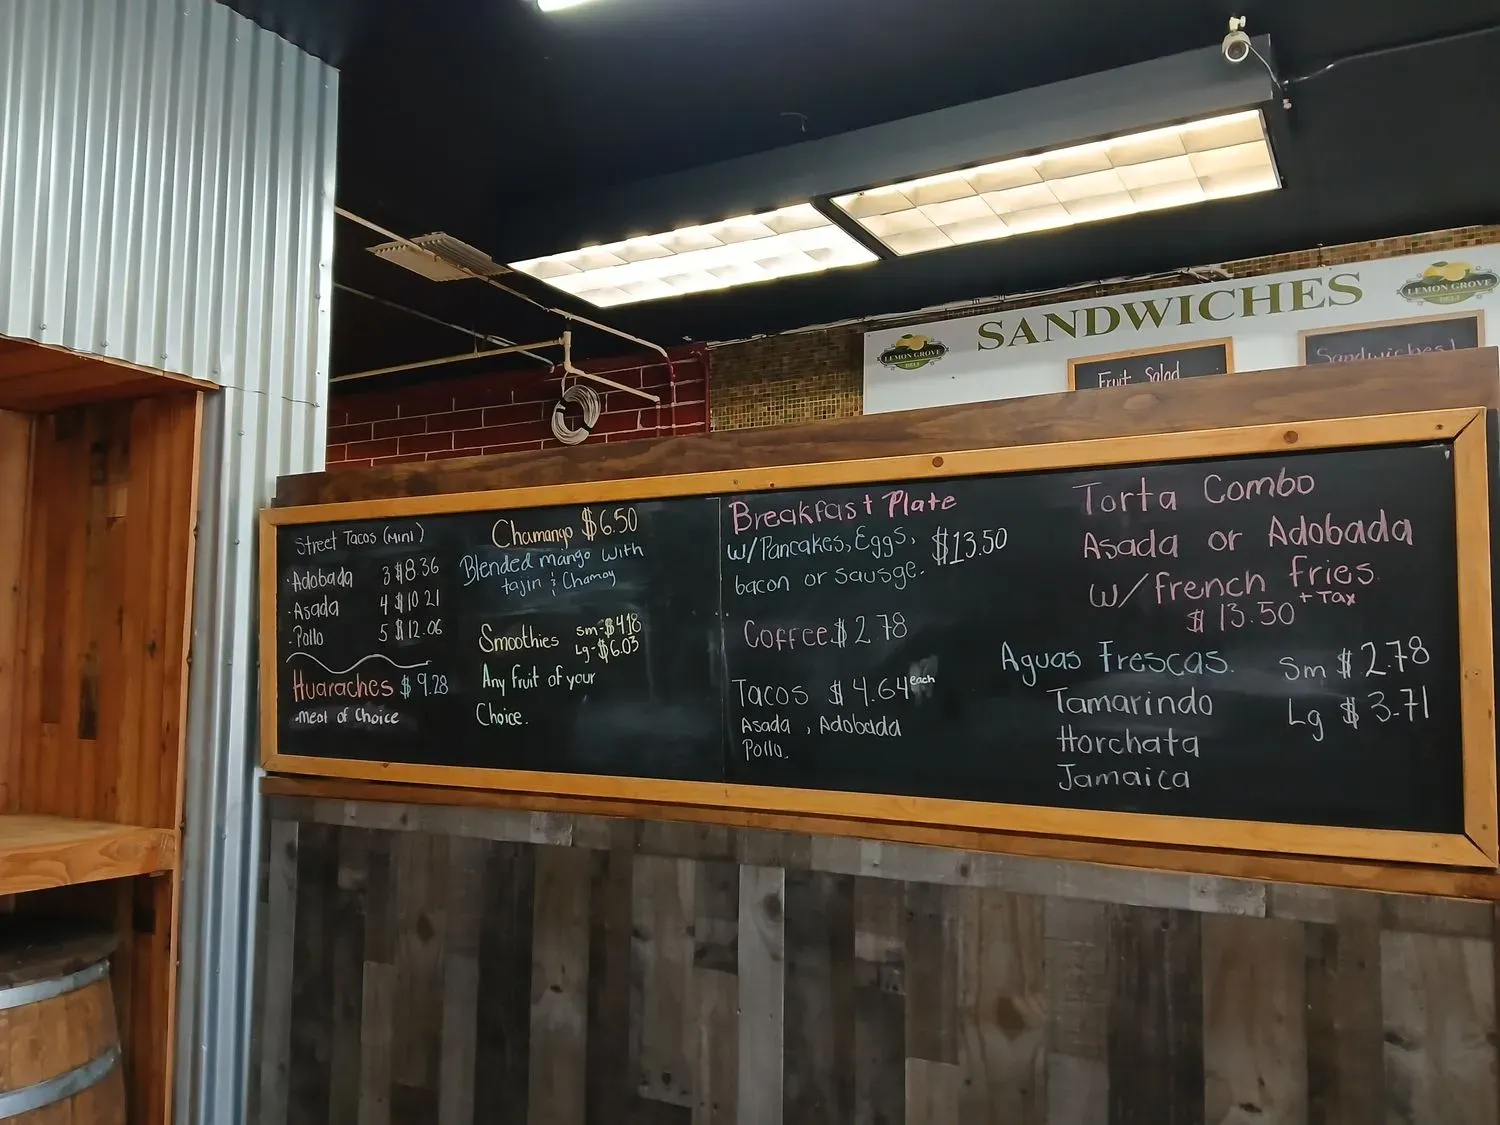 SANDWICHES
LEMON GROVE
DELI
LEMON GROVE
DELI
Fruit Salad
Sandwiches!
Street Tacos (Mini)
·Adobada 3 $8.36
·Asada 4 $10.21
·Pollo 5 $12.06
Huaraches $9.28
-Meat of Choice
Chamango $6.50
Blended mango with
tajin & Chamoy
Smoothies sm-$4.18
Lg-$6.03
Any fruit of your
Choice.
Breakfast Plate
w/Pancakes, Eggs, $13.50
bacon or sausge.
Coffee $2.78
Tacos $4.64 each
Asada , Adobada
Pollo.
Torta Combo
Asada or Adobada
w/french fries
$13.50 + Tax
Aguas Frescas. Sm $2.78
Tamarindo Lg $3.71
Horchata
Jamaica